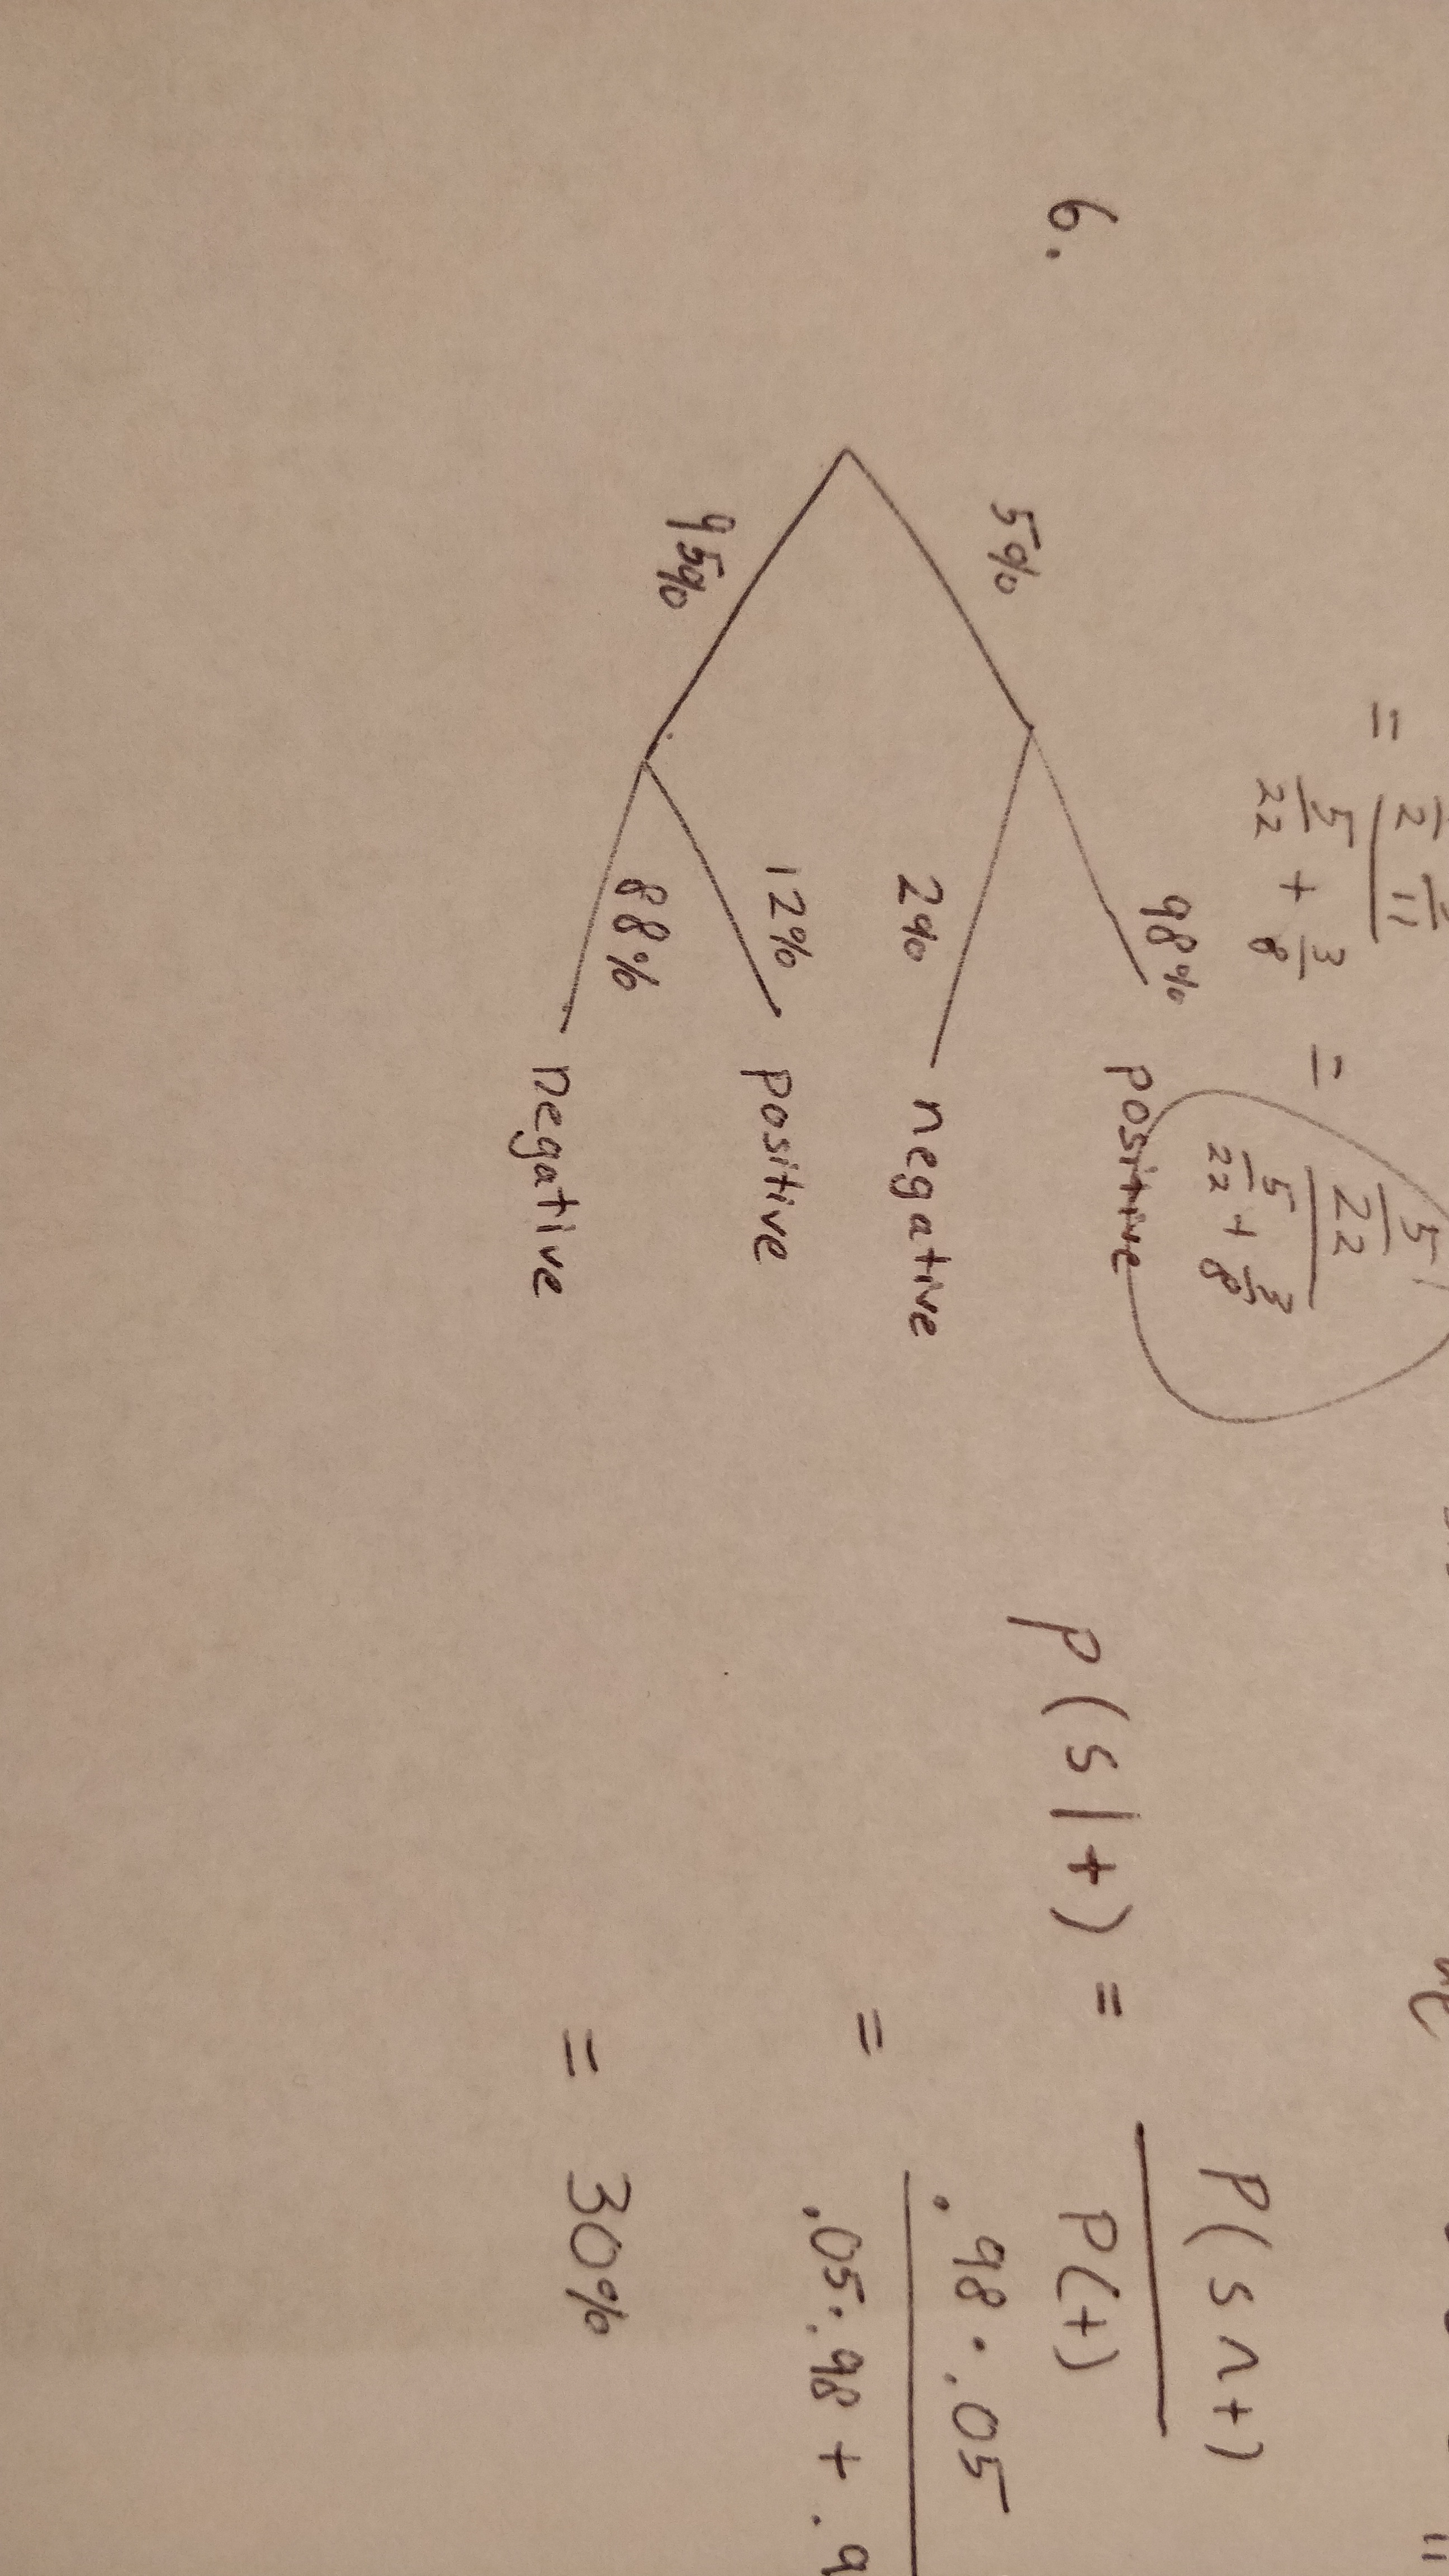 = 5/22 + 3/8 = 5/22 / (5/22 + 3/8)
6.
5%
98% positive
2% negative
95%
12% positive
88% negative
P(s|+) = P(s∩+) / P(+)
= .98 · .05 / .05 · .98 + .9
= 30%